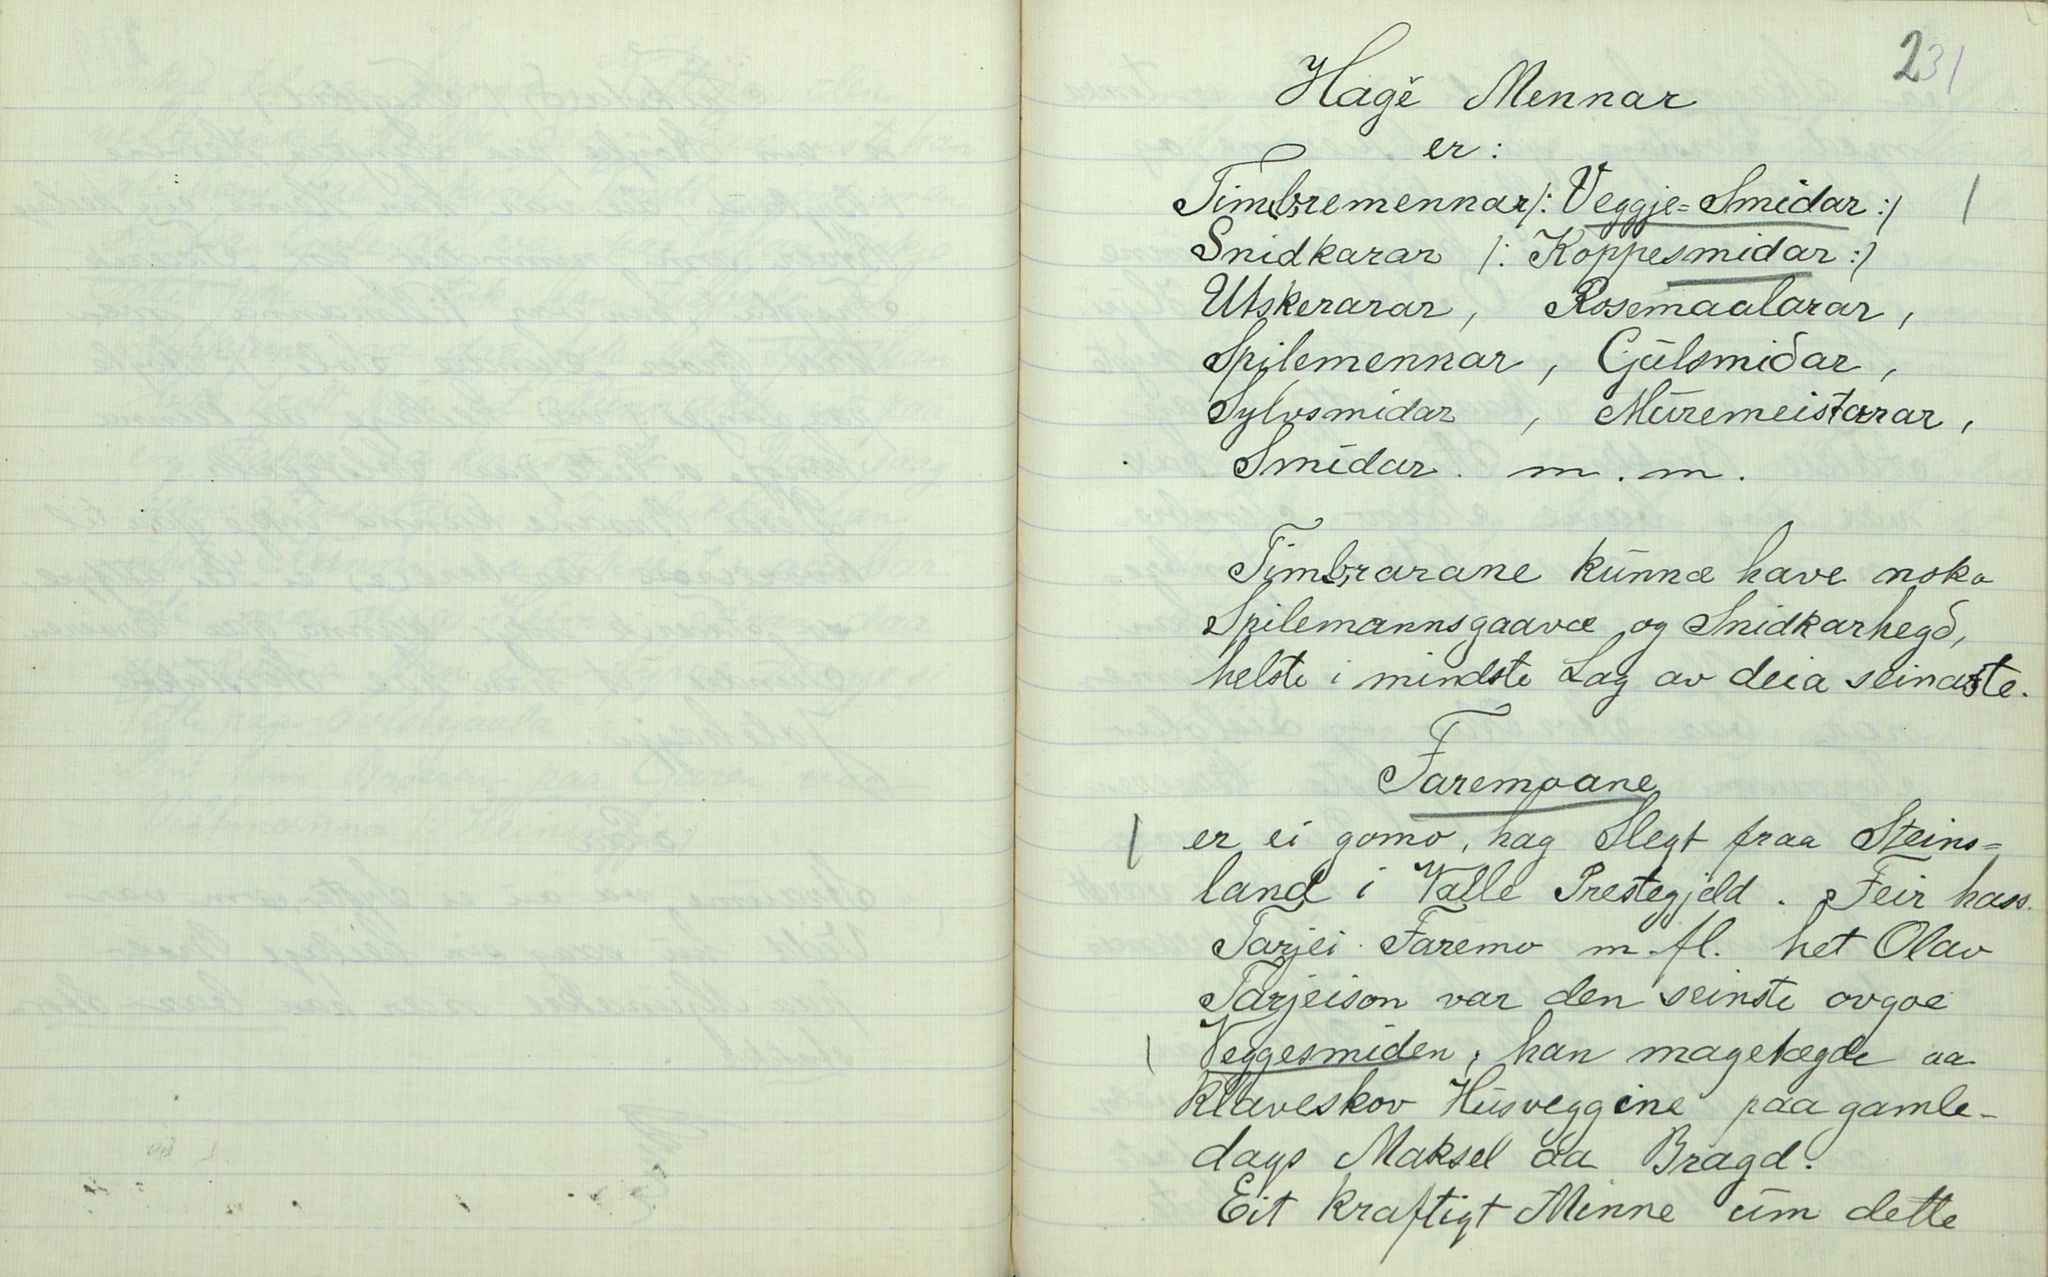 231
Hagè Mennar
er :
Timbremennar /: Veggje=Smidar :/
Snidkarar /: Koppesmidar :/
Utskerarar , Rosemaalarar ,
Spilemennar , Gúlsmiðar ,
Sylvsmidar , Múremeistarar ,
Smidar . m . m .
Timbrarane kúnnæ have noko
Spilemannsgaavæ og Snidkarhegð,
helste i mindste Lag av deia seinaste.
Faremoane
er ei gomo, hag Slegt fraa Steins=
land i Valle Prestegjeld . Feir hass
Tarjei Faremo m. fl. het Olav
Tarjeison var den seinste ovgoe
Veggesmiden , han magelægde aa
klaveskov Húsveggine paa gamle-
dags Maksel aa Bragd.
Eit kraftigt Minne úm dette